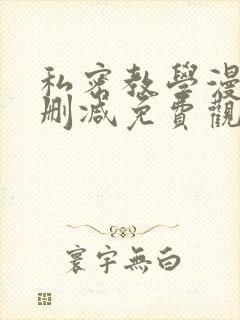 私密教學漫
刪減免費觀
寰宇無白